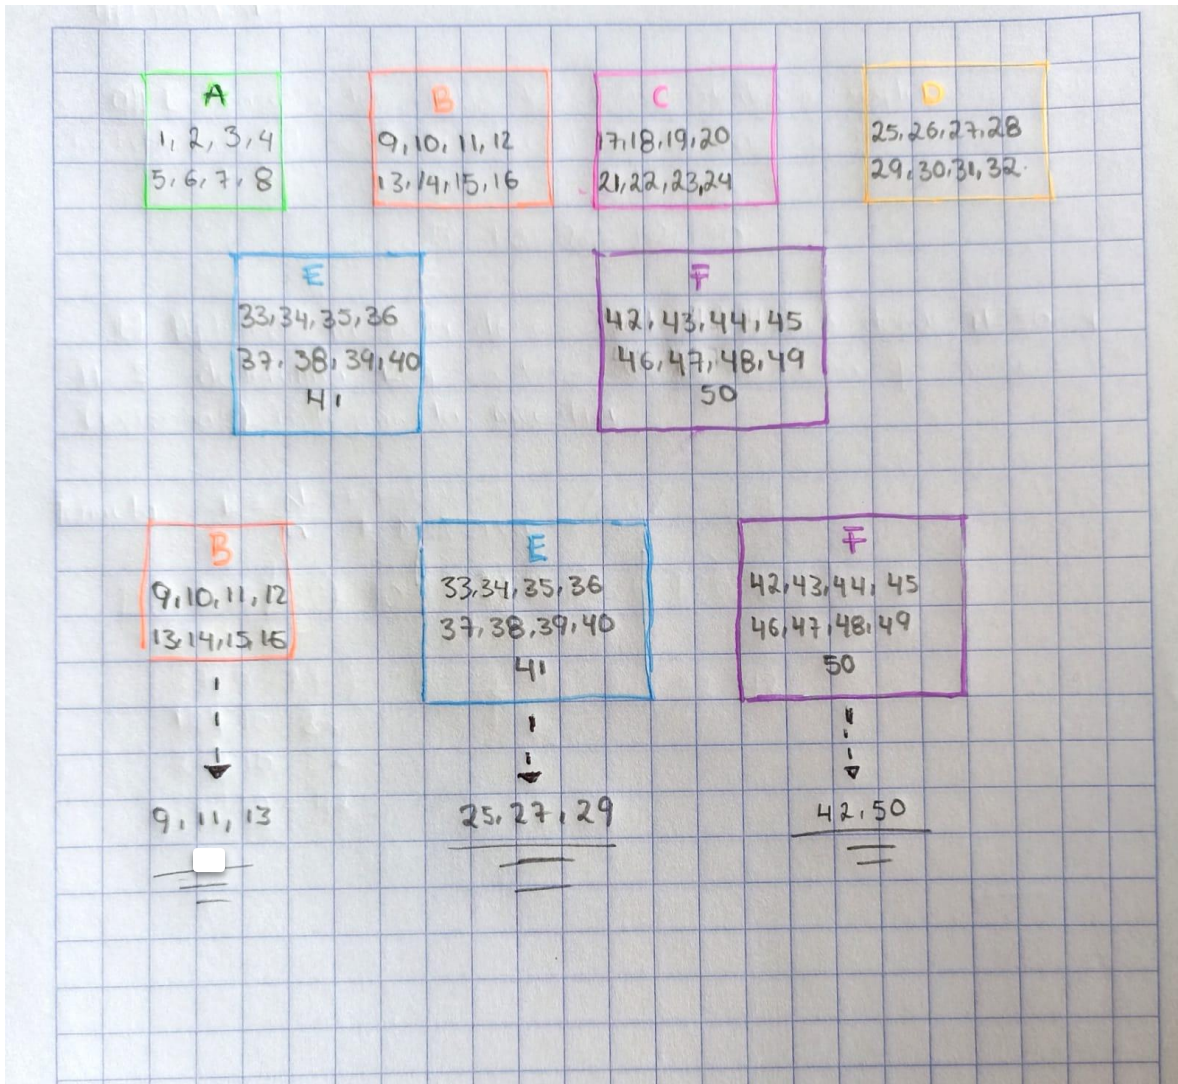 A
1, 2, 3, 4
5, 6, 7, 8
B
9, 10, 11, 12
13, 14, 15, 16
C
17, 18, 19, 20
21, 22, 23, 24
D
25, 26, 27, 28
29, 30, 31, 32.
E
33, 34, 35, 36
37, 38, 39, 40
41
F
42, 43, 44, 45
46, 47, 48, 49
50
B
9, 10, 11, 12
13, 14, 15, 16
E
33, 34, 35, 36
37, 38, 39, 40
41
F
42, 43, 44, 45
46, 47, 48, 49
50
9, 11, 13
25, 27, 29
42, 50